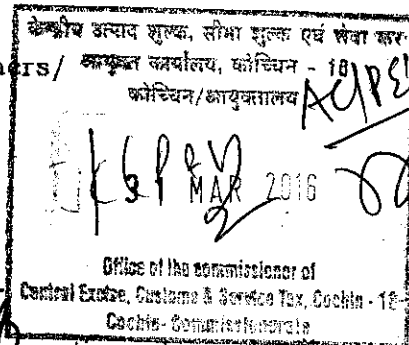 केन्द्रीय उत्पाद शुल्क, सीमा शुल्क एवं सेवा कर
ers/ आयुक्त कार्यालय, कोच्चिन - 18
कोच्चिन/आयुक्तालय
MAR 2016
Office of the commissioner of
Central Excise, Customs & Service Tax, Cochin - 18
Cochin- Commissionerate